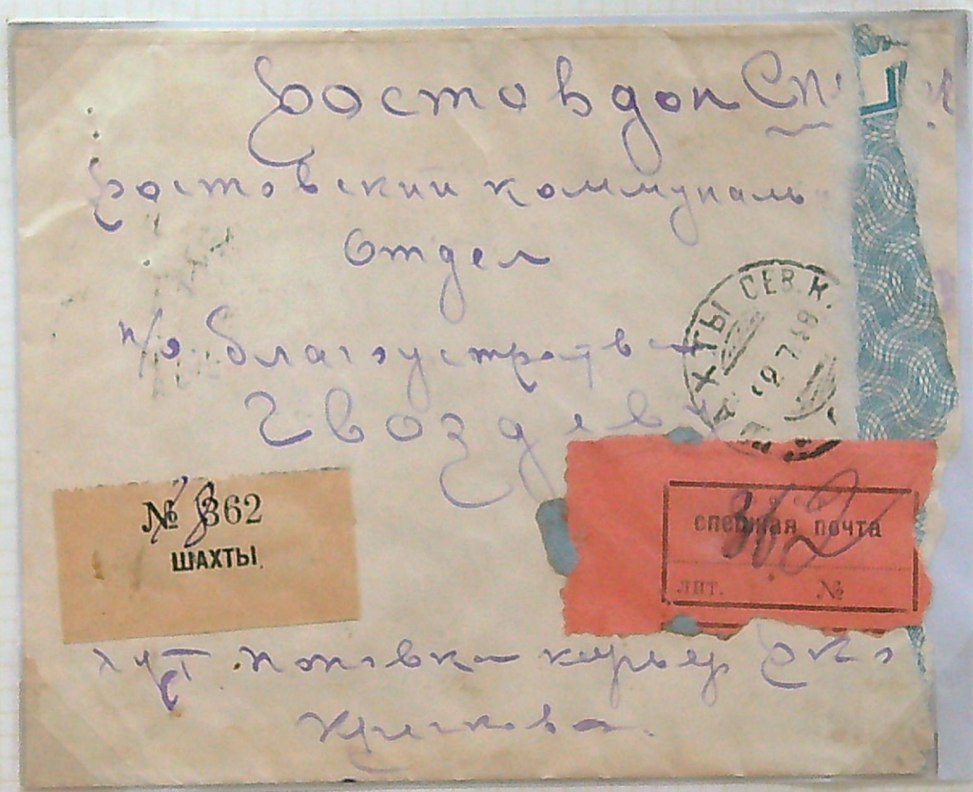 Ростовдон
Ростовский коммуналь
Отдел
п/о благоустройства
Гвоздев
ШАХТЫ СЕВ. К.
№ 362
ШАХТЫ.
СПЕШНАЯ ПОЧТА
362
ЛИТ. №
хут Поповка курьер